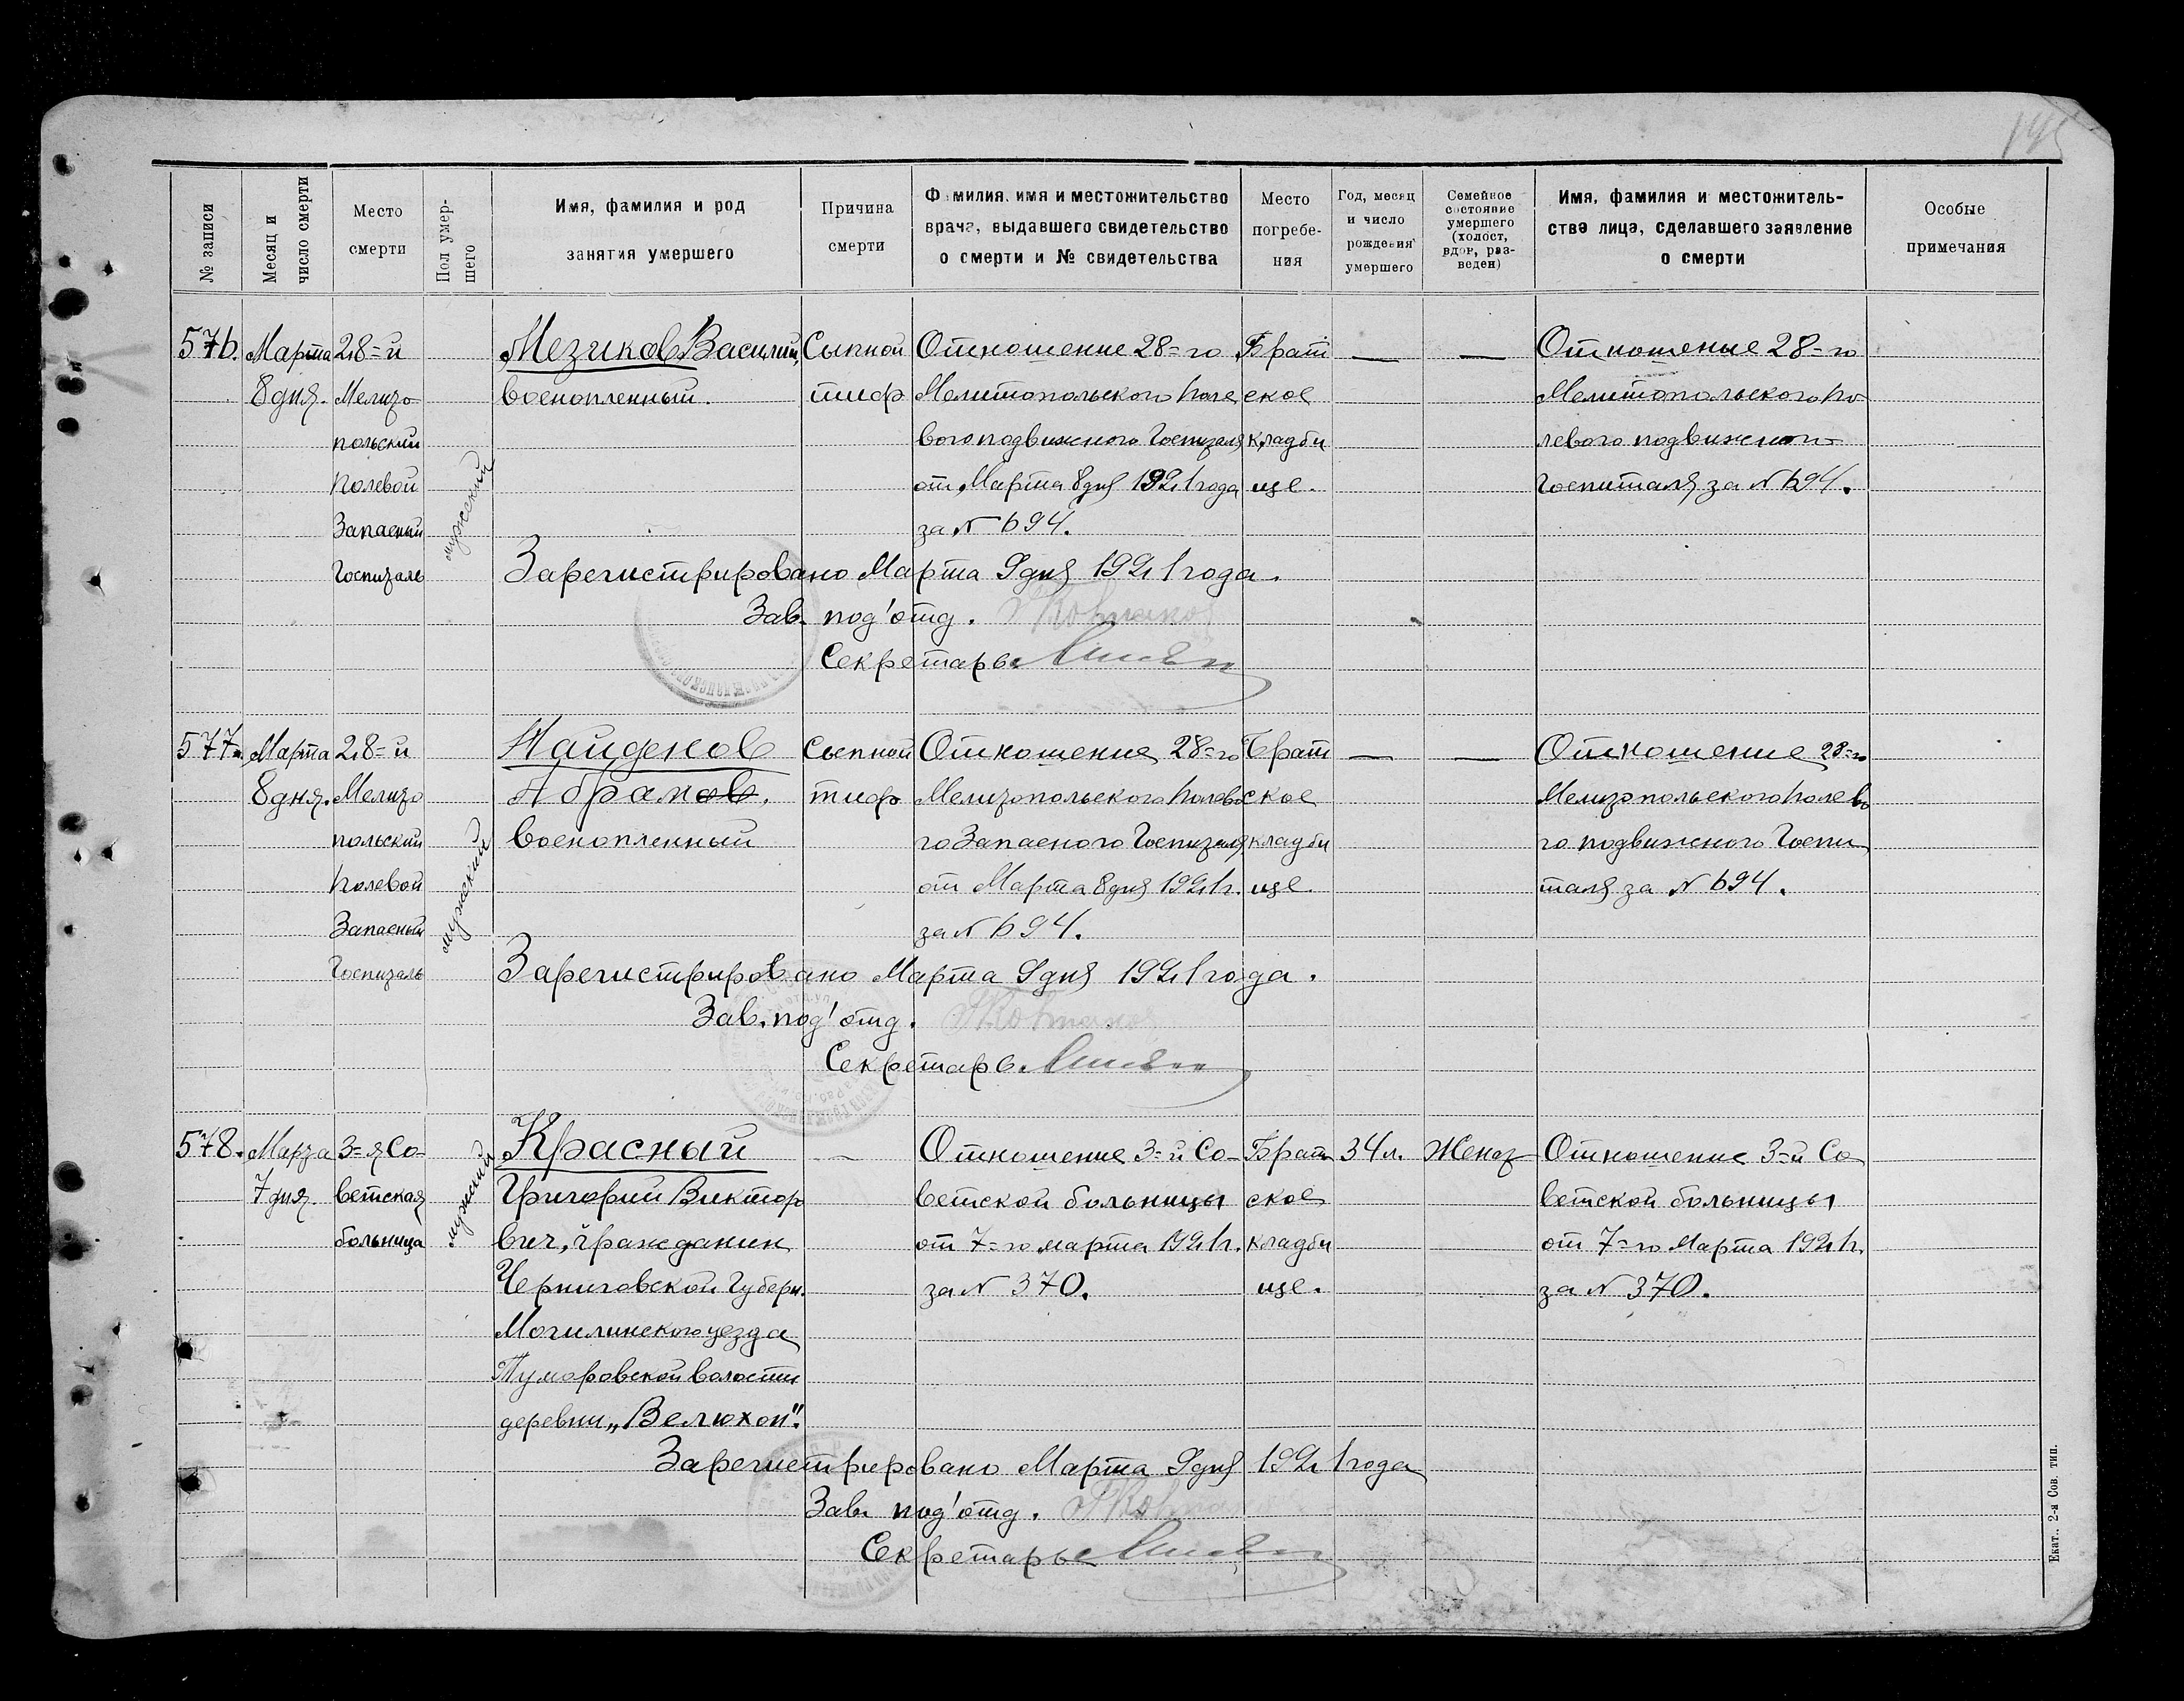 195
№ записи
Месяц и число смерти
Место смерти
Пол умер-шего
Имя, фамилия и род занятия умершего
Причина смерти
Фамилия, имя и местожительство врача, выдавшего свидетельство о смерти и № свидетельства
Место погребе-ния
Год, месяц и число рождения умершего
Семейное состояние умершего (холост, вдов, раз-веден)
Имя, фамилия и местожитель-ства лица, сделавшего заявление о смерти
Особые примечания
576.
Марта
8 дня.
28=й
Мелито
польский
Полевой
Запасный
Госпиталь
мужской
Мезиков Василий,
военопленный.
Сыпной
тиф
Отношение 28=го
Мелитопольского Поле
вого подвижного Госпиталя
от Марта 8 дня 1921 года
за № 694.
Брат
ское
кладби
ще.
—
—
Отношение 28=го
Мелитопольского По-
левого подвижного=
Госпиталя за № 694.
Зарегистрировано Марта 9 дня 1921 года.
Зав. под'отд.
Секретарь
577.
Марта
8 дня.
28=й
Мелито
польский
Полевой
Запасный
Госпиталь
мужской
Найденов
Абрам
военопленный
Сыпной
тиф
Отношение 28=го
Мелитопольского Полево
го Запасного Госпиталя
от Марта 8 дня 1921 г.
за № 694.
Брат
ское
кладби
ще.
—
—
Отношение 28=го
Мелитопольского Полево
го подвижного Госпи
таля за № 694.
Зарегистрировано Марта 9 дня 1921 года.
Зав. под'отд.
Секретарь
578.
Марта
7 дня.
3=я Со-
ветская
больница
мужской
Красный
Григорий Виктор
вич, гражданин
Черниговской Губерн.
Могилинского уезда
Тумаровской волости
деревни „Велюхоп".
—
Отношение 3=й Со-
ветской больницы
от 7=го марта 1921 г.
за № 370.
Брат
ское
кладби
ще.
34 л.
Женат
Отношение 3=й Со
ветской больницы
от 7=го Марта 1921 г.
за № 370.
Зарегистрировано Марта 9 дня 1921 года
Зав. под'отд.
Секретарь
Екат., 2-я Сов. тип.